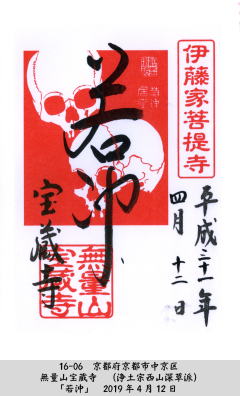 伊藤家菩提寺
平成三十一年
四月 十二日
若冲
宝蔵寺
無量山
宝蔵寺
16-06 京都府京都市中京区
無量山宝蔵寺 (浄土宗西山深草派)
「若冲」 2019年4月12日